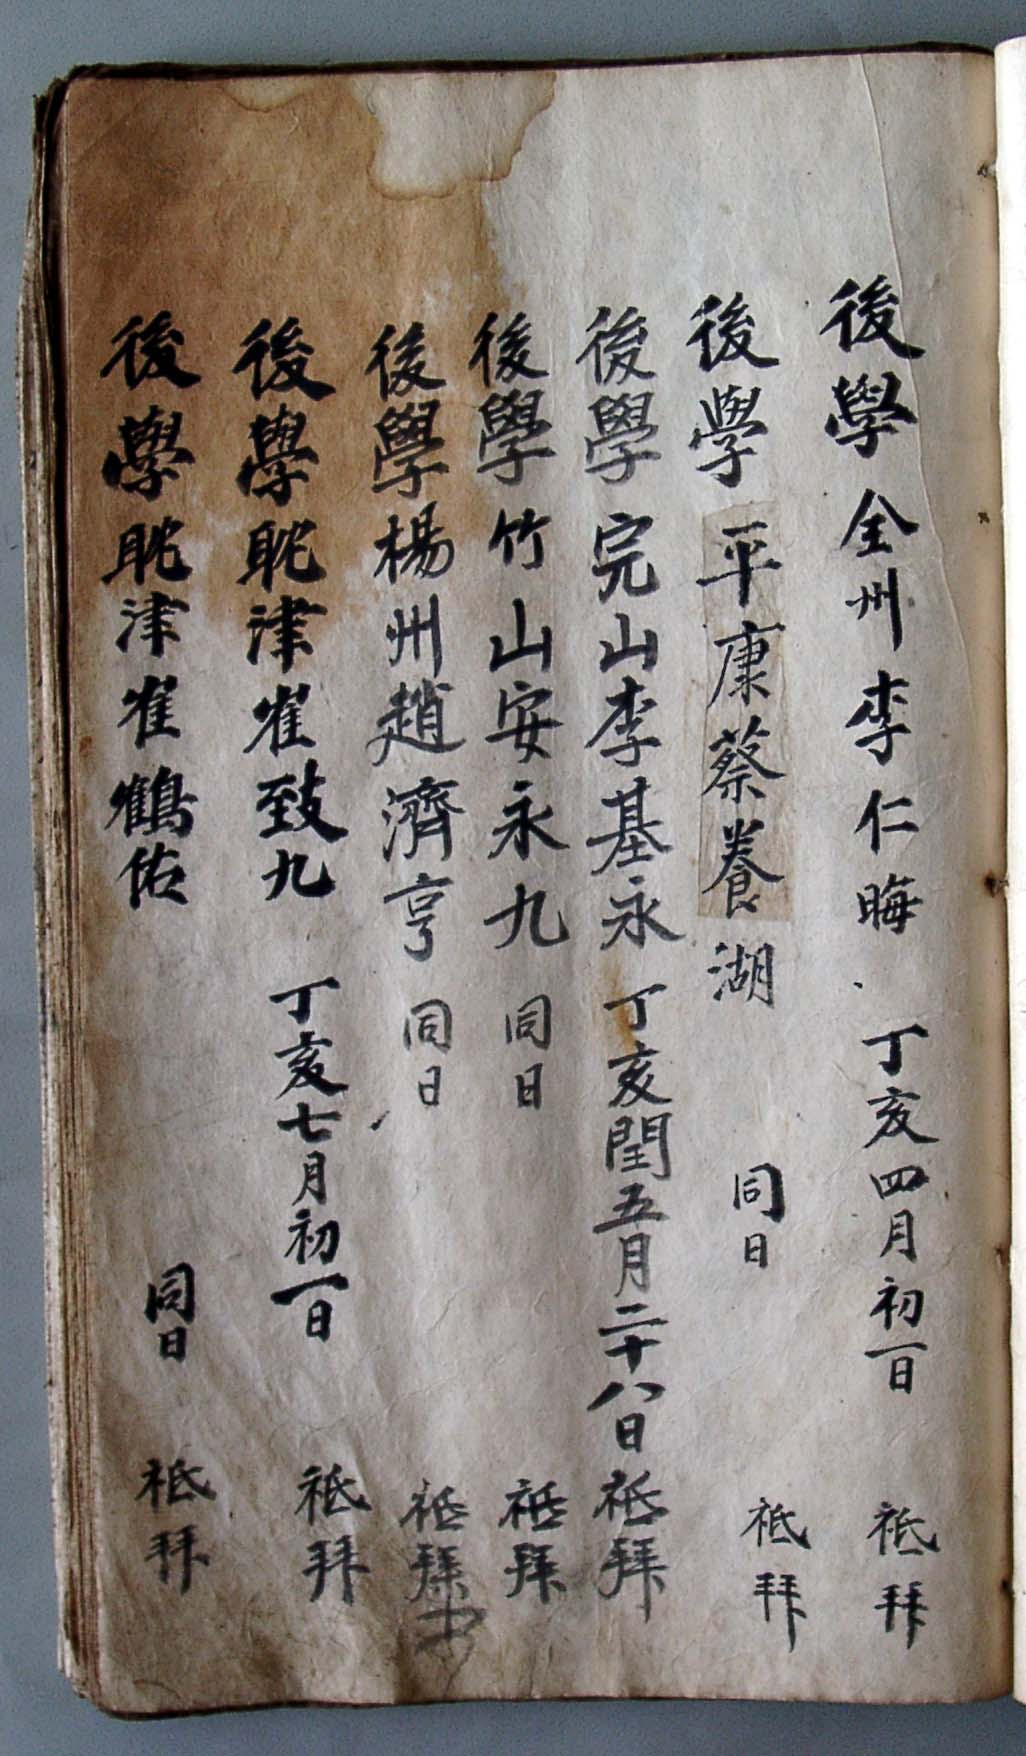 後學全州李仁晦 丁亥四月初一日 祗拜
後學平康蔡養湖 同日 祗拜
後學完山李基永 丁亥閏五月二十八日 祗拜
後學竹山安永九 同日 祗拜
後學楊州趙濟亨 同日 祗拜
後學耽津崔致九 丁亥七月初一日 祗拜
後學耽津崔鶴佑 同日 祗拜